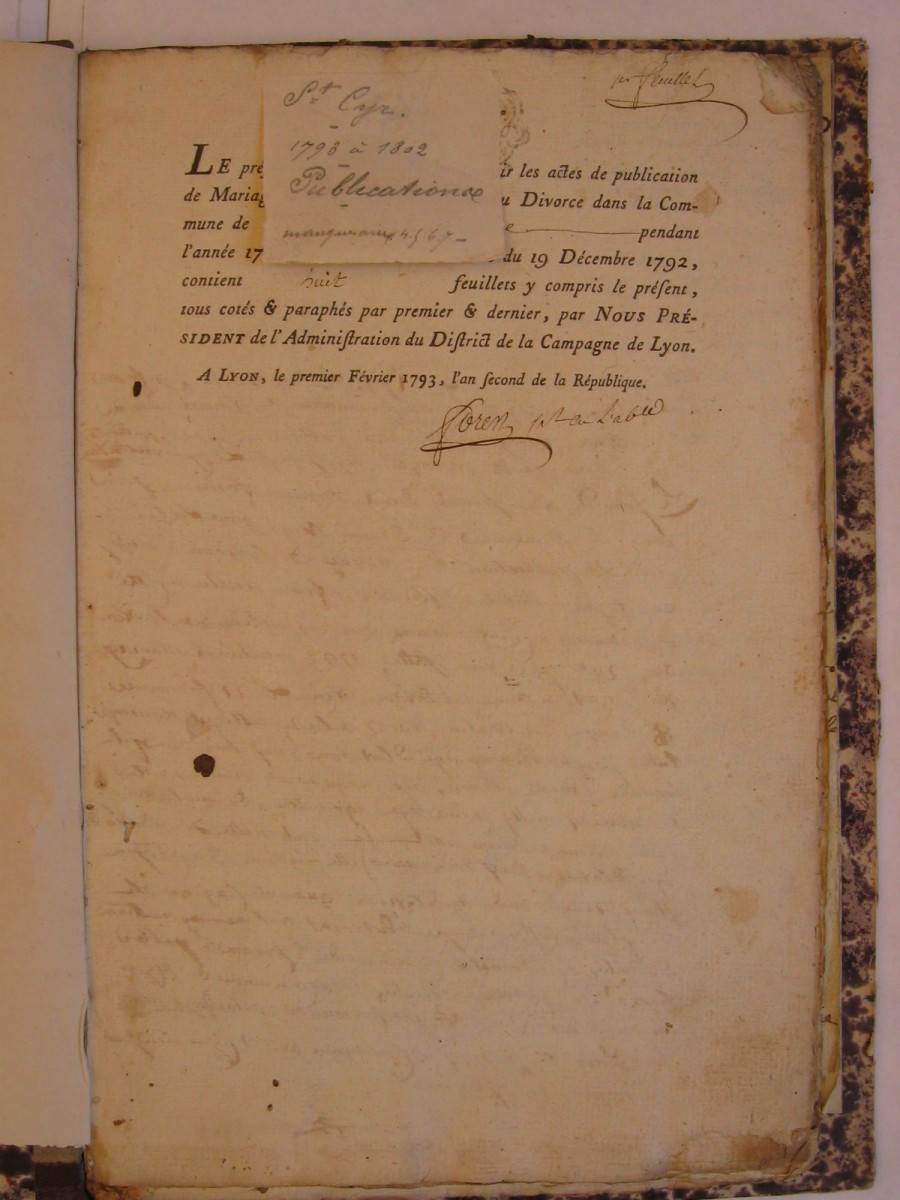 per feuillet
St Cyr.
1793 à 1802
Publications
manque aux 4. 5. 6. 7 -
LE pré ir les actes de publication
de Mariag u Divorce dans la Com-
mune de e pendant
l'année 17 du 19 Décembre 1792,
contient huit feuillets y compris le préſent,
tous cotés & paraphés par premier & dernier, par NOUS PRÉ-
SIDENT de l'Adminiſtration du Diſtrict de la Campagne de Lyon.
A LYON, le premier Février 1793, l'an ſecond de la République.